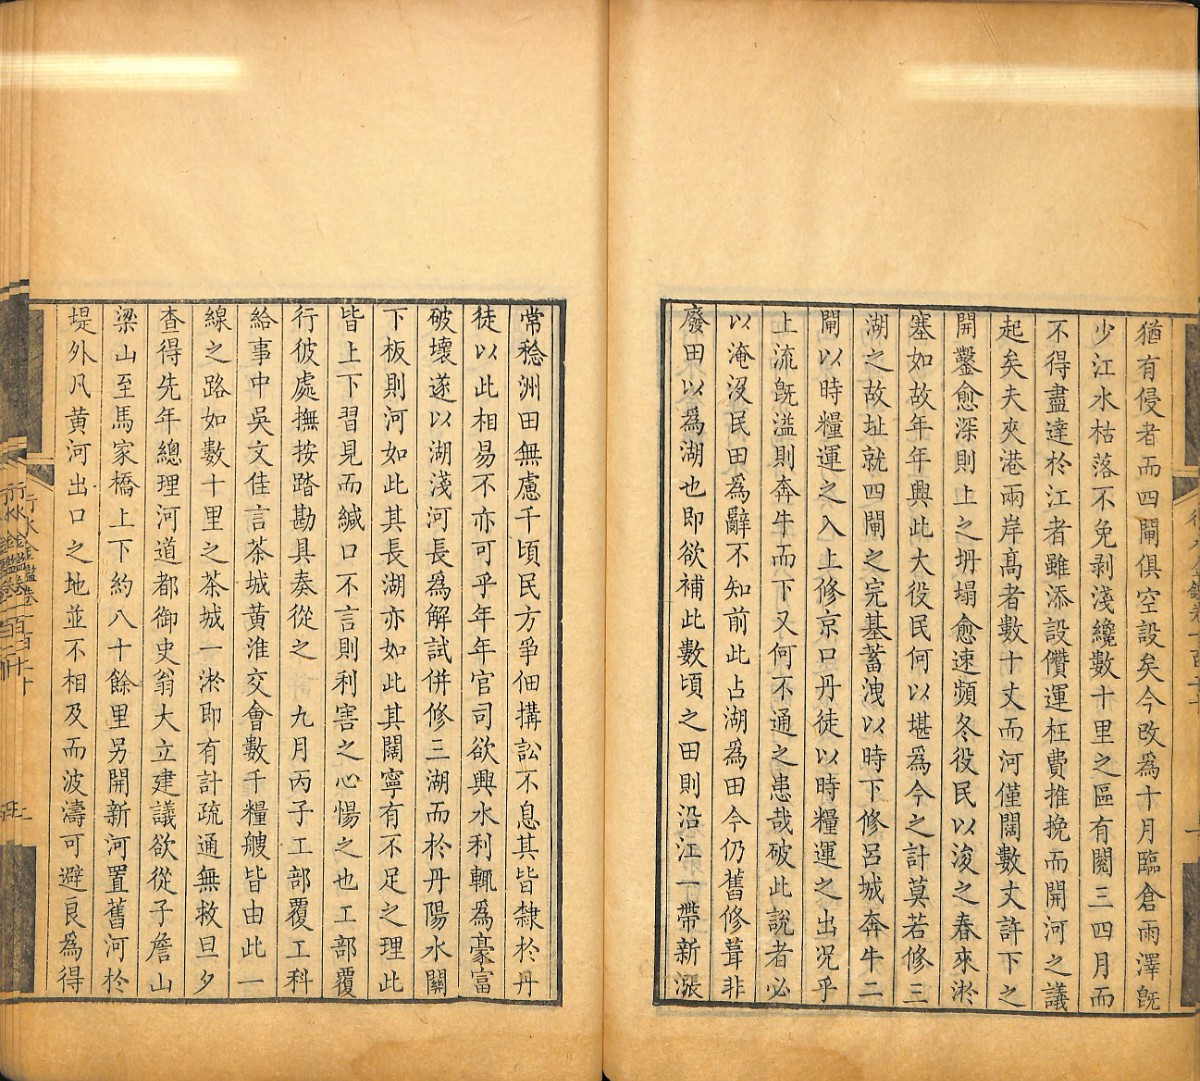 猶有侵者而四閘俱空設矣今改爲十月臨倉雨澤旣
少江水枯落不免剥淺纔數十里之區有閱三四月而
不得盡達於江者雖添設儹運枉費推挽而開河之議
起矣夫夾港兩岸髙者數十丈而河僅闊數丈許下之
開鑿愈深則上之坍塌愈速頻冬役民以浚之春來淤
塞如故年年興此大役民何以堪爲今之計莫若修三
湖之故址就四閘之完基蓄洩以時下修呂城奔牛二
閘以時糧運之入上修京口丹徒以時糧運之出况乎
上流旣溢則奔牛而下又何不通之患哉破此說者必
以淹沒民田爲辭不知前此占湖爲田今仍舊修葺非
廢田以爲湖也即欲補此數頃之田則沿江一帶新漲
常稔洲田無慮千頃民方爭佃搆訟不息其皆隸於丹
徒以此相易不亦可乎年年官司欲興水利輒爲豪富
破壞遂以湖淺河長爲解試併修三湖而於丹陽水關
下板則河如此其長湖亦如此其闊寧有不足之理此
皆上下習見而緘口不言則利害之心惕之也工部覆
行彼處撫按踏勘具奏從之　九月丙子工部覆工科
給事中吳文佳言茶城黄淮交會數千糧艘皆由此一
線之路如數十里之茶城一淤即有計疏通無救旦夕
查得先年總理河道都御史翁大立建議欲從子詹山
梁山至馬家橋上下約八十餘里另開新河置舊河於
堤外凡黄河出口之地並不相及而波濤可避良爲得
行水金鑑卷一百二十